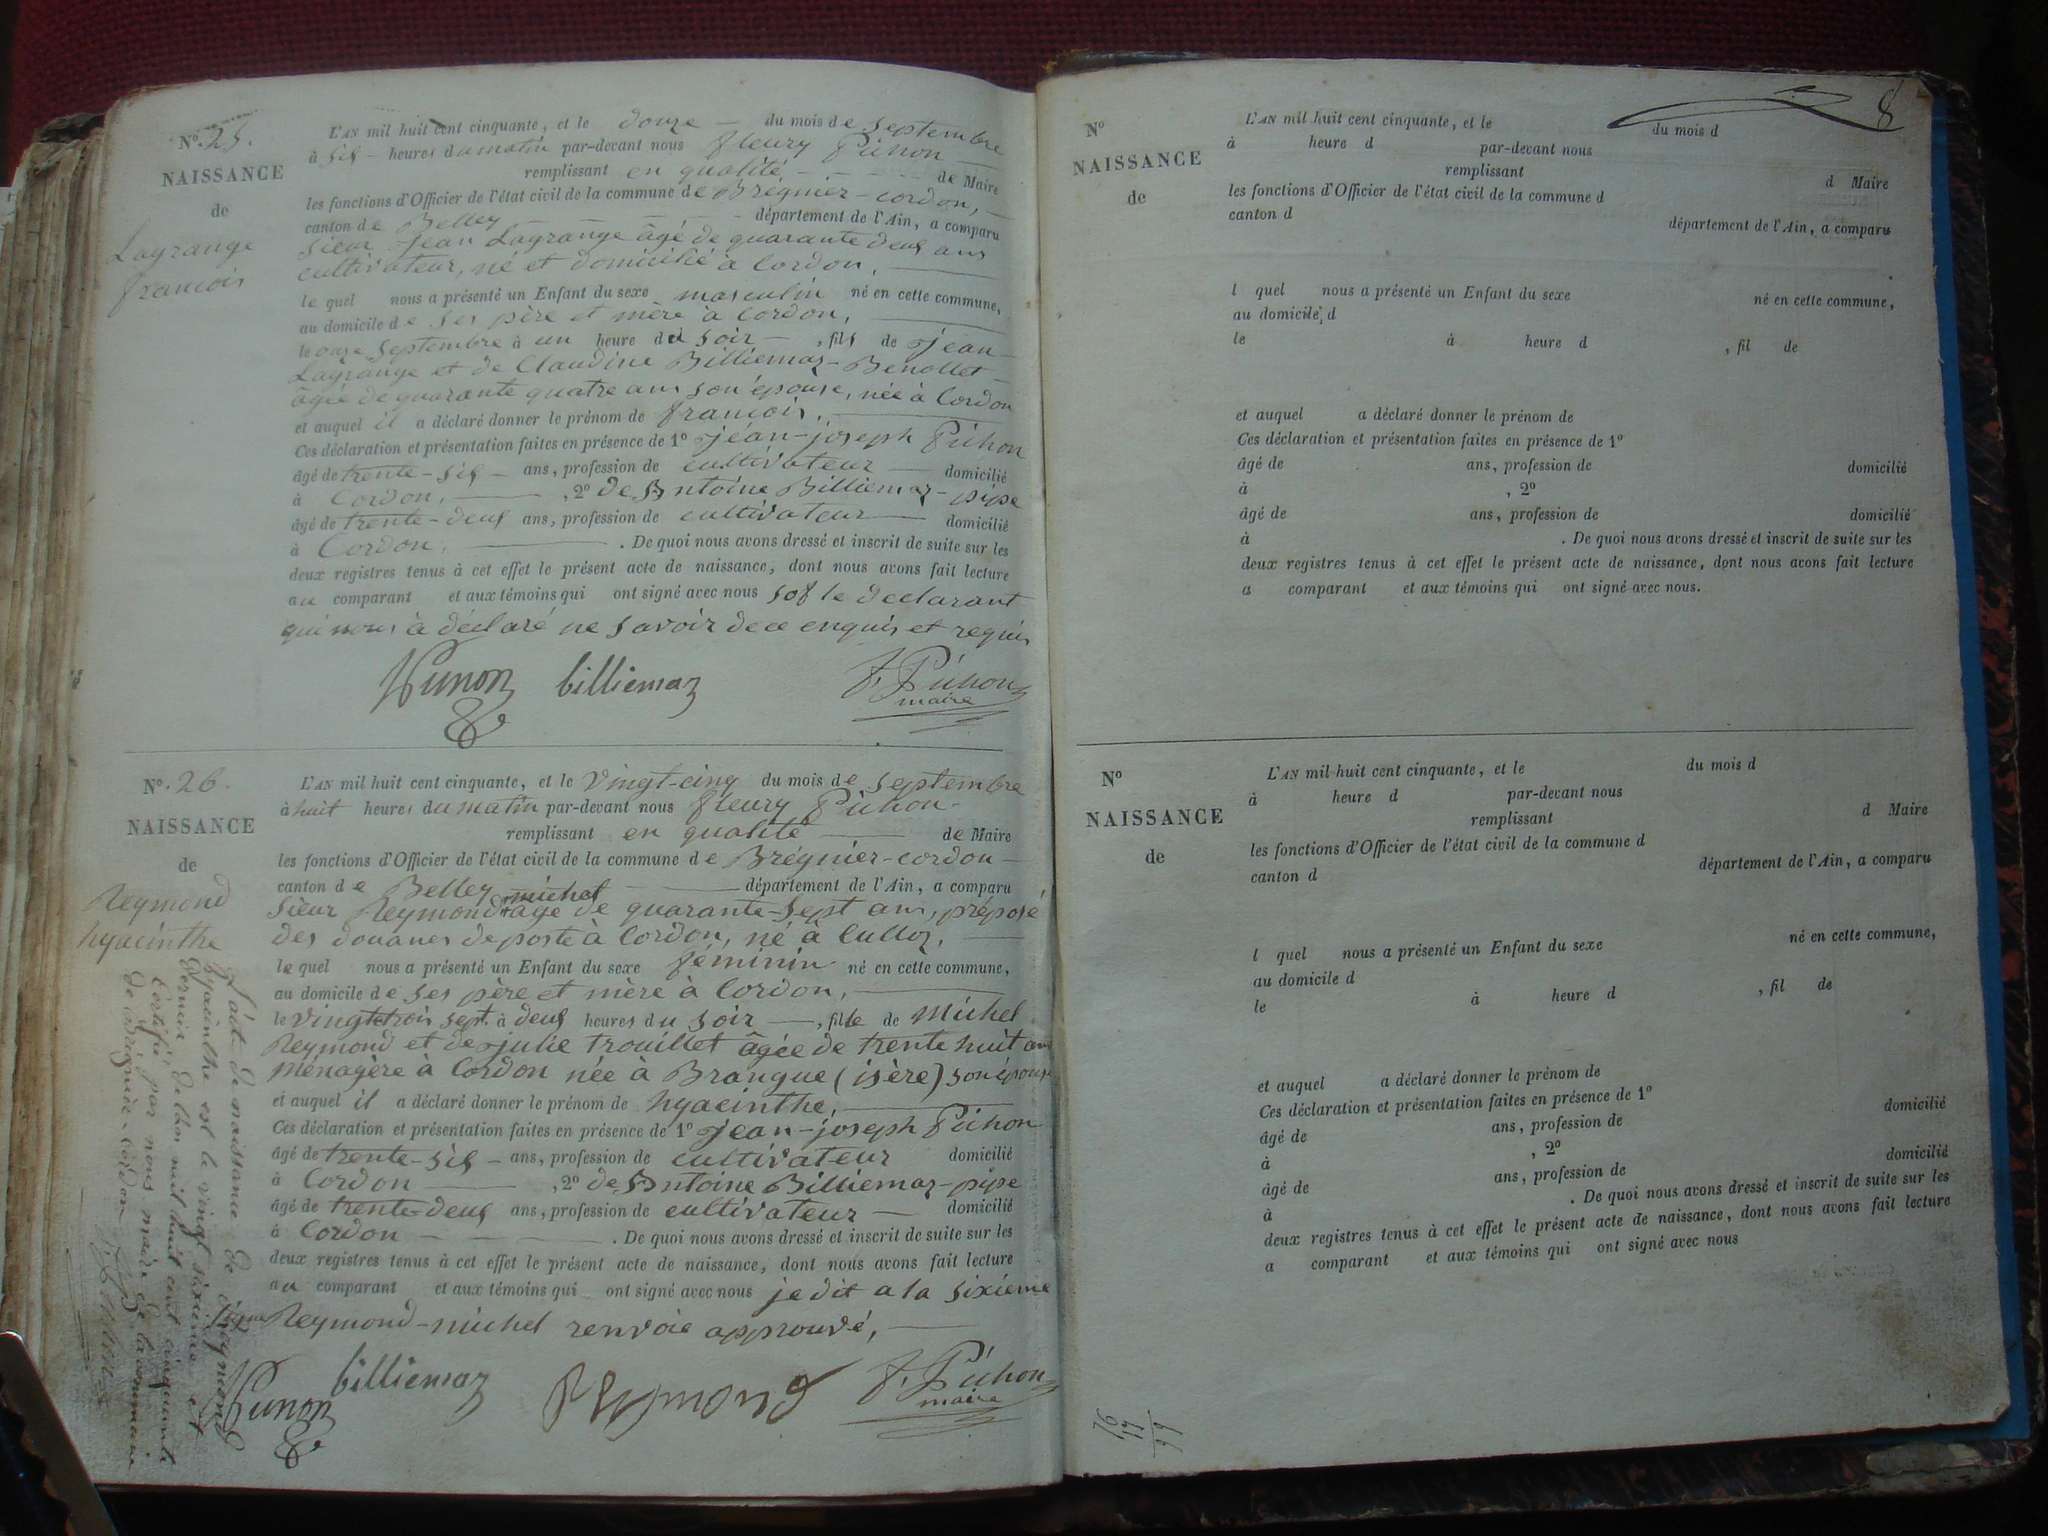 N° 25.
NAISSANCE
de
Lagrange
françois
L'AN mil huit cent cinquante, et le douze du mois de septembre
à six heures du matin par-devant nous fleury Pichon
remplissant en qualité de Maire
les fonctions d'Officier de l'état civil de la commune de Brégnier-cordon,
canton de Belley département de l'Ain, a comparu
sieur Jean Lagrange âgé de quarante deux ans
cultivateur, né et domicilié à Cordon,
lequel nous a présenté un Enfant du sexe masculin né en cette commune,
au domicile de ses père et mère à Cordon,
le onze septembre à un heure du soir, fils de Jean
Lagrange et de Claudine Billiemaz-Benollet
âgée de quarante quatre ans son épouse, née à Cordon
et auquel il a déclaré donner le prénom de françois.
Ces déclaration et présentation faites en présence de 1° Jean-joseph Pichon
âgé de trente-six ans, profession de cultivateur domicilié
à Cordon, , 2° de Antoine Billiemaz-pipe
âgé de trente-deux ans, profession de cultivateur domicilié
à Cordon. . De quoi nous avons dressé et inscrit de suite sur les
deux registres tenus à cet effet le présent acte de naissance, dont nous avons fait lecture
au comparant et aux témoins qui ont signé avec nous sof le declarant
qui nous à déclaré ne savoir de ce enquis et requis
billiemaz
f. Pichon
maire
N° 26.
NAISSANCE
de
Reymond
hyacinthe
L'AN mil huit cent cinquante, et le vingt-cinq du mois de septembre
à huit heures du matin par-devant nous fleury Pichon
remplissant en qualité de Maire
les fonctions d'Officier de l'état civil de la commune de Brégnier-cordon
canton de Belley département de l'Ain, a comparu
michel
sieur Reymond âgé de quarante-sept ans, préposé
des douanes de poste à Cordon, né à Culloz,
lequel nous a présenté un Enfant du sexe féminin né en cette commune,
au domicile de ses père et mère à Cordon,
le vingt trois sept. à deux heures du soir, fille de Michel
Reymond et de julie trouillet âgée de trente huit ans
ménagère à Cordon née à Brangue (isère) son épouse
et auquel il a déclaré donner le prénom de hyacinthe,
Ces déclaration et présentation faites en présence de 1° Jean-joseph Pichon
âgé de trente-six ans, profession de cultivateur domicilié
à Cordon , 2° de Antoine Billiemaz-pipe
âgé de trente-deux ans, profession de cultivateur domicilié
à Cordon . De quoi nous avons dressé et inscrit de suite sur les
deux registres tenus à cet effet le présent acte de naissance, dont nous avons fait lecture
au comparant et aux témoins qui ont signé avec nous je dit a la sixième
ligne Reymond-michel renvoie approuvé,
billiemaz
Reymond
f. Pichon
maire
L'act de naissance de Reymond
hyacinthe est le vingt sixième et
dernier de l'an mil huit cent cinquante
Certifié par nous maire de la commune
de Brégnier-Cordon
8
N°
NAISSANCE
de
L'AN mil huit cent cinquante, et le du mois d
à heure d par-devant nous
remplissant d Maire
les fonctions d'Officier de l'état civil de la commune d
canton d département de l'Ain, a comparu
l quel nous a présenté un Enfant du sexe né en cette commune,
au domicile d
le à heure d , fil de
et auquel a déclaré donner le prénom de
Ces déclaration et présentation faites en présence de 1°
âgé de ans, profession de domicilié
à , 2°
âgé de ans, profession de domicilié
à . De quoi nous avons dressé et inscrit de suite sur les
deux registres tenus à cet effet le présent acte de naissance, dont nous avons fait lecture
a comparant et aux témoins qui ont signé avec nous.
N°
NAISSANCE
de
L'AN mil huit cent cinquante, et le du mois d
à heure d par-devant nous
remplissant d Maire
les fonctions d'Officier de l'état civil de la commune d
canton d département de l'Ain, a comparu
l quel nous a présenté un Enfant du sexe né en cette commune,
au domicile d
le à heure d , fil de
et auquel a déclaré donner le prénom de
Ces déclaration et présentation faites en présence de 1°
âgé de ans, profession de domicilié
à , 2°
âgé de ans, profession de domicilié
à . De quoi nous avons dressé et inscrit de suite sur les
deux registres tenus à cet effet le présent acte de naissance, dont nous avons fait lecture
a comparant et aux témoins qui ont signé avec nous